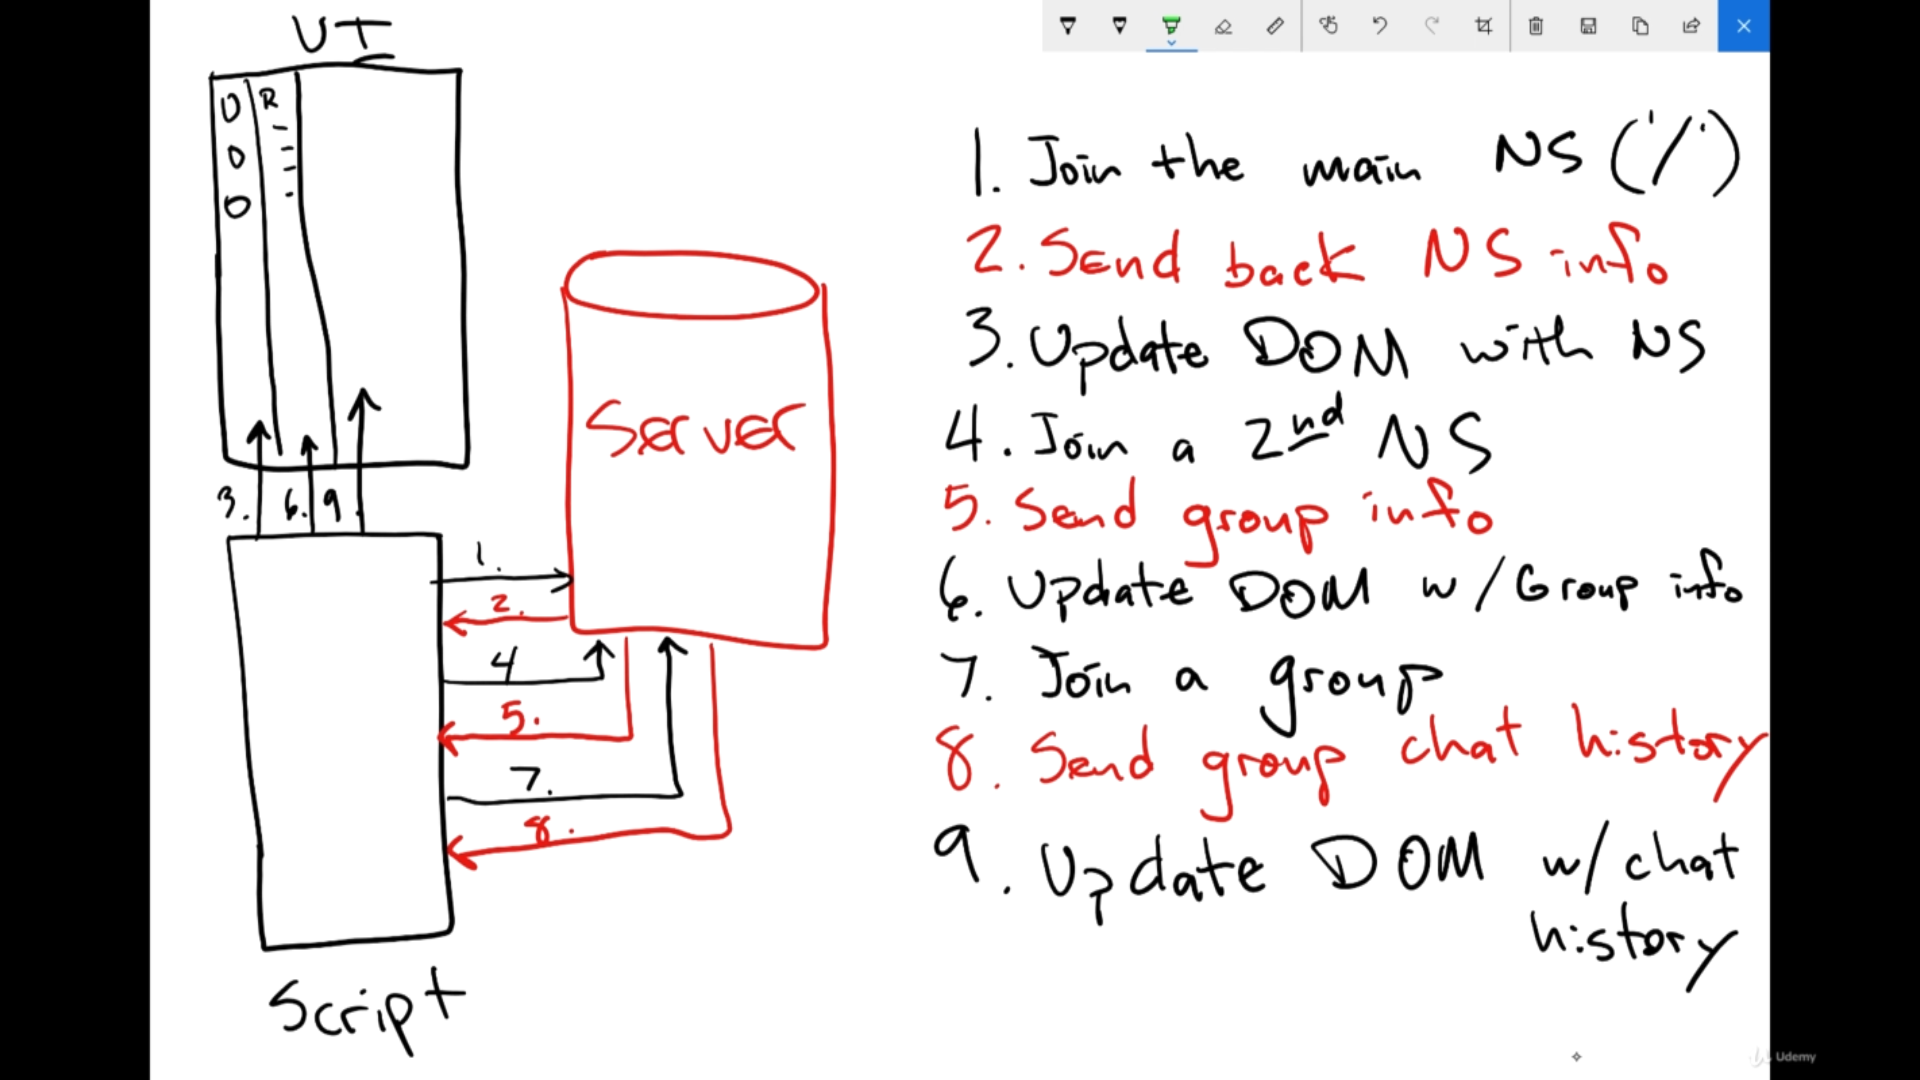 UI
O R
O
O
3. 6. 9.
1.
2.
4
5.
7.
8.
Server
Script
1. Join the main NS ('/')
2. Send back NS info
3. Update DOM with NS
4. Join a 2nd NS
5. Send group info
6. Update DOM w/ Group info
7. Join a group
8. Send group chat history
9. Update DOM w/ chat
history
Udemy